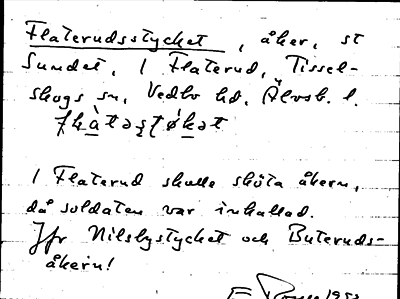 Flaterudsstycket, åker, st
Sundet, 1 Flaterud, Tissel-
skogs sn, Vedbo hd, Älvsb. l.
I Flaterud skulle sköta åkern,
då soldaten var inkallad.
Jfr Nilsbystycket och Buteruds-
åkern!